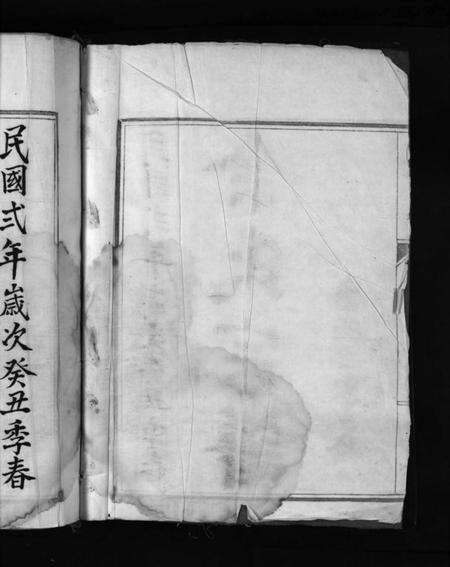 民國弍年歲次癸丑季春